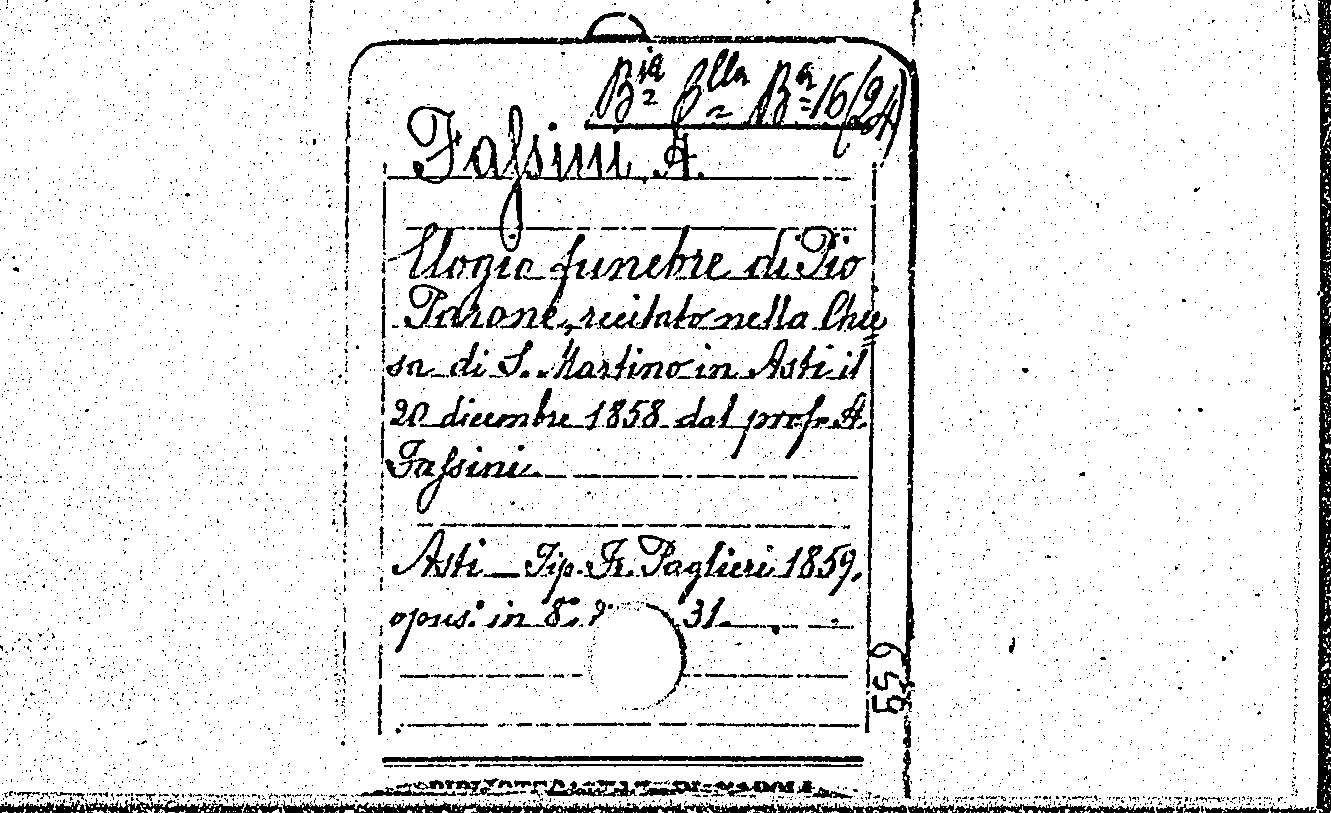 Bia Blla Ba 16/24
Fassini A.
Elogio funebre di Pio
Parone, recitato nella Chie
sa di S. Martino in Asti il
20 dicembre 1858 dal prof. A.
Fassini.
Asti Tip. Fr. Paglieri 1859.
opus. in 8. 31.
659